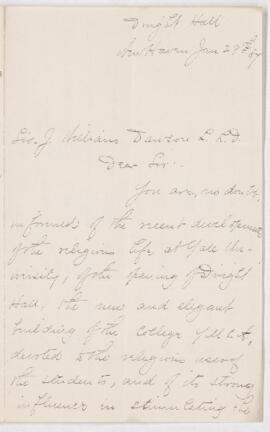 Dwight Hall
New Haven Jan 29th 87
Sir. J. William Dawson L.L.D.
Dear Sir:-
You are, no doubt,
informed of the recent development
of the religious life, at Yale Uni-
versity, of the opening of Dwight
Hall, the new and elegant
building of the College Y.M.C.A.
devoted to the religious uses of
the students, and of its strong
influence in stimulating the